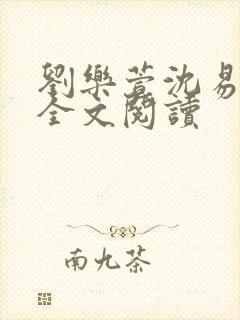 劉樂萱沈易
全文閱讀
南九茶